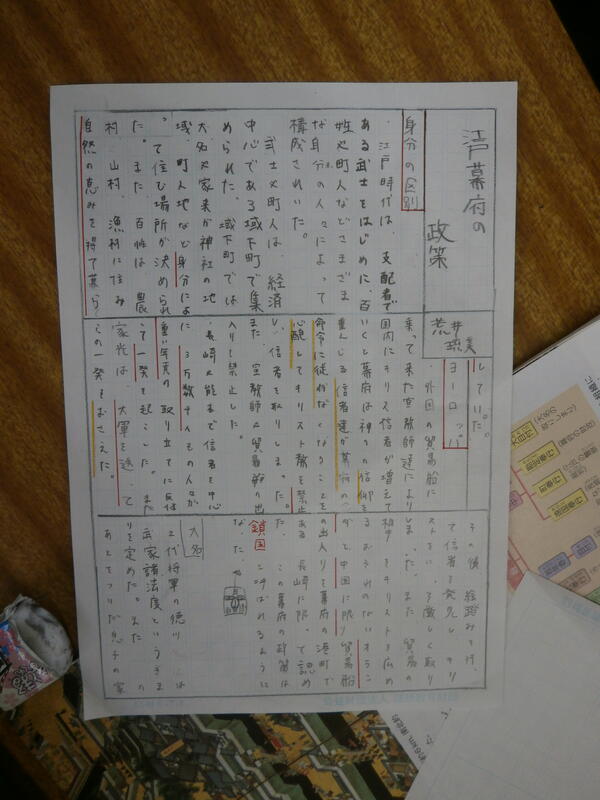 江戸幕府の
政策
荒井
身分の区別
・江戸時代は、支配者で
ある武士をはじめに、百
姓や町人などさまざま
な身分の人々によって
構成されいた。
武士や町人は、経済
中心である城下町で集
められた。城下町では
大名や家来が神社の地
域、町人地など身分によ
って住む場所が決められ
た。また百姓は農
村、山村、漁村に住み
自然の恵みを得て暮ら
していた。
ヨーロッパ
・外国の貿易船に
乗って来た宣教師達により
国内にキリスト信者が増えて
いくし幕府は神への信仰を
重んじる信者達が幕府の
命令に従わなくなることを
心醒してキリスト教を禁止
し、信者を取りしまった。
また宣教師や貿易船の出
入りを禁止した。
・長崎や熊本で信者を中心
に3万数千人もの人々が
重い年貢の取り立てに反
して一発を起こした。また
家光は、大軍を送って
この一発をおさえた。
その後、絵踏みをさけ、
て信者を発見し、キリ
スト 厳しく取り
しまった。また貿易の
相手をキリストを広め
るおそれのないオラン
ダと中国に限り貿易船
の出入りを幕府の港町で
ある長崎に限って認め
た。この幕府の政策は
鎖国と呼ばれるように
なった。
大名
2代将軍の徳川 は
武家諸法度というきま
りを定めた。また の
あとをついだ息子の家